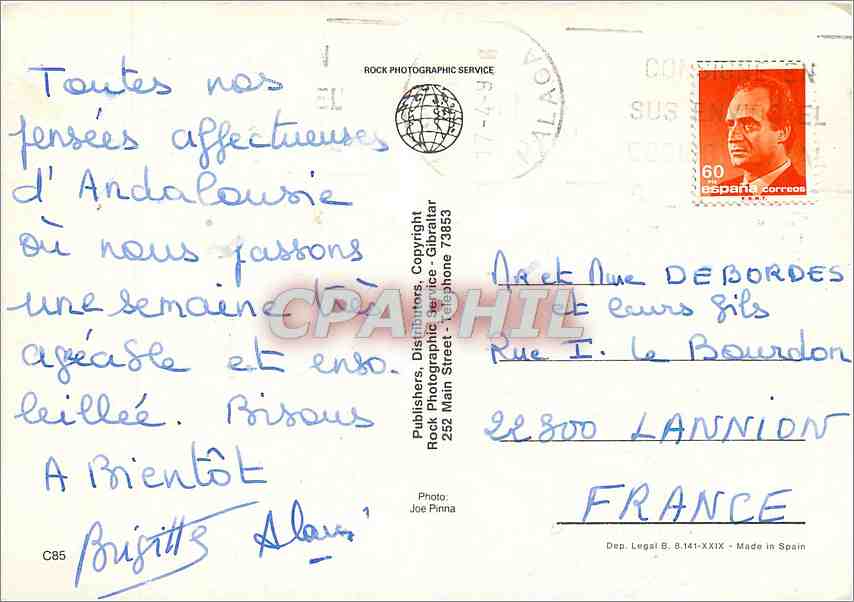 Toutes nos
pensées affectueuses
d'Andalousie
où nous passons
une semaine très
agéable et enso-
leillée. Bisous
A Bientôt
Brigitte Alain
C85
ROCK PHOTOGRAPHIC SERVICE
Publishers, Distributors, Copyright
Rock Photographic Service - Gibraltar
252 Main Street - Telephone 73853
Photo:
Joe Pinna
17-4-9
CONSIGNE EN
SUS ENVIOS EL
60
PTA
españa correos
F.N.M.T.
Mr et Mme DEBORDES
et leurs fils
Rue I. le Bourdon
22300 LANNION
FRANCE
Dep. Legal B. 8.141-XXIX - Made in Spain
CPA PHIL